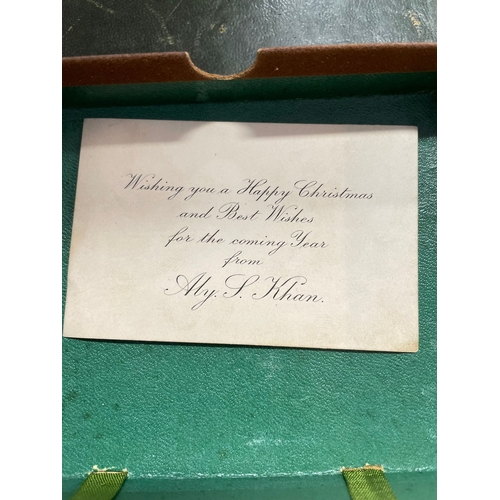 Wishing you a Happy Christmas
and Best Wishes
for the coming Year
from
Aly. S. Khan.